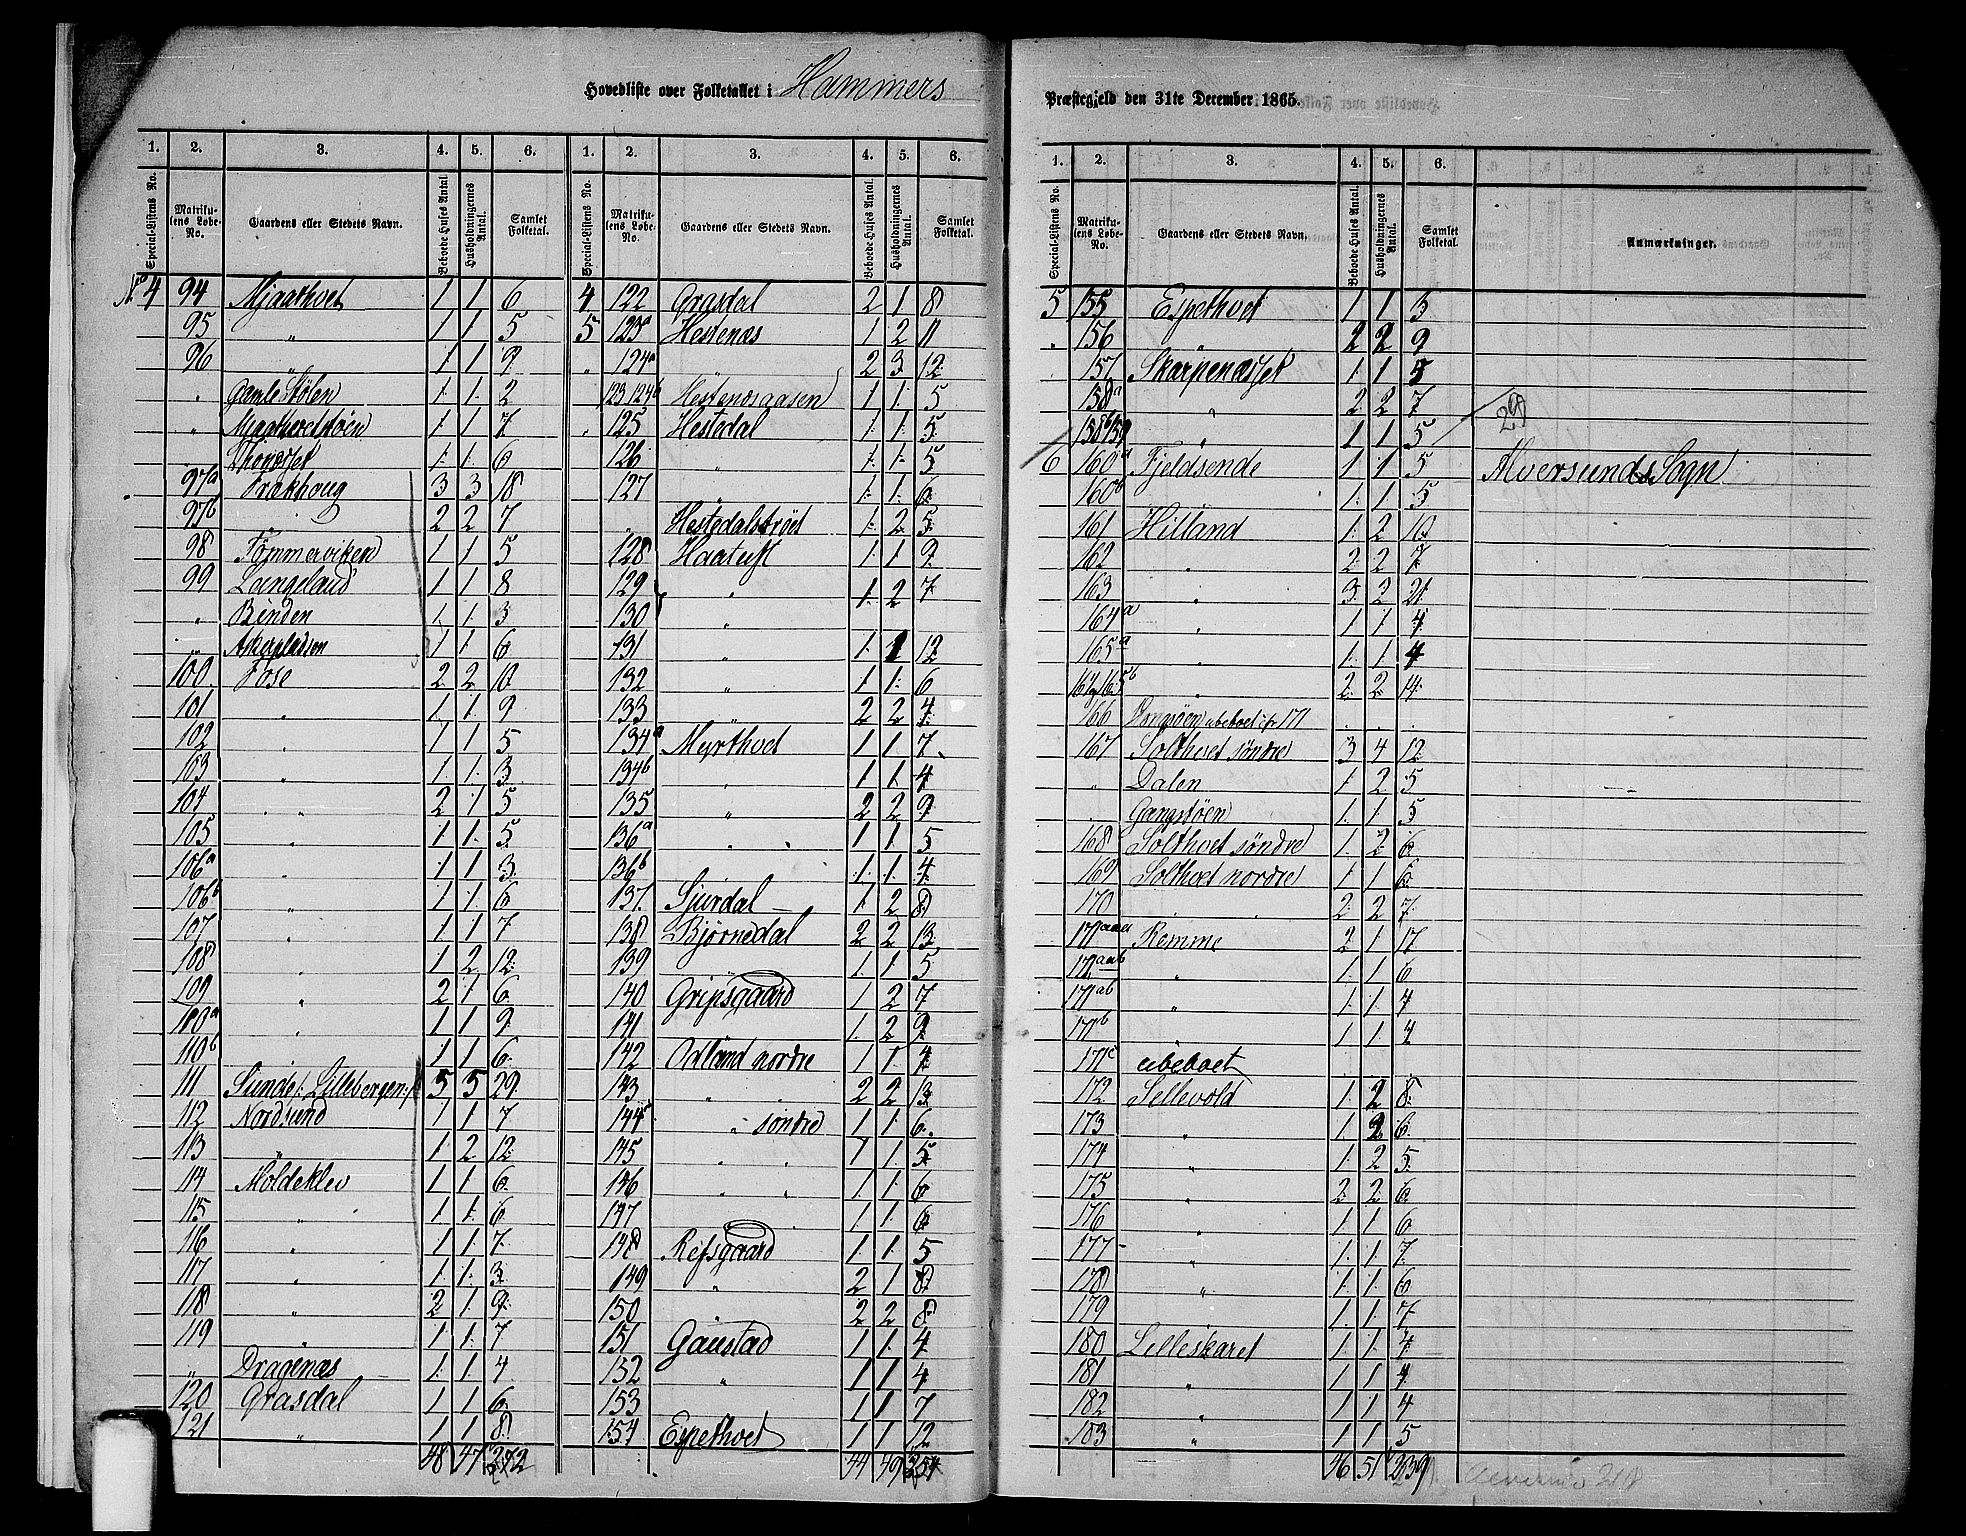 Hovedliste over Folketallet i Hammers
Præstegjeld den 31te December 1865.
1. 2. 3. 4. 5. 6. 1. 2. 3. 4. 5. 6.
Special-Listens No. Matrikulens Løbe-No. Gaardens eller Stedets Navn. Beboede Huses Antal. Husholdningernes Antal. Samlet Folketal. Special-Listens No. Matrikulens Løbe-No. Gaardens eller Stedets Navn. Beboede Huses Antal. Husholdningernes Antal. Samlet Folketal.
No 4 94 Mjaathvet 1 1 6
95 " 1 1 5
96 " 1 1 9
" Gamle Stølen 1 1 2
" Mjaathvetstøen 1 1 7
1 1 6
97a Frækhoug 3 3 18
97b 2 2 7
98 Tømmerviken 1 1 5
99 Langeland 1 1 8
" Binden 1 1 3
" Akerpladsen 1 1 6
100 Fose 2 2 10
101 " 1 1 9
102 " 1 1 5
103 " 1 1 3
104 " 2 1 5
105 " 1 1 5
106a " 1 1 3
106b " 1 1 6
107 " 1 1 7
108 " 1 2 12
109 " 2 1 6
110a " 1 1 9
110b 1 1 6
111 Sunde /: Lillebergen :/ 5 5 29
112 Nordsund 1 1 7
113 " 1 2 12
114 Moldeklev 1 1 6
115 " 1 1 6
116 " 1 1 7
117 " 1 1 3
118 " 2 1 9
119 " 1 1 7
" Dragenæs 1 1 4
120 Grasdal 1 1 6
121 " 1 1 8
48 47 272
4 122 Grasdal 2 1 8
5 123a Hestenæs 1 2 11
" 124a 2 3 12
123 124b Hestenæsaasen 1 1 5
" 125 Hestdal 1 1 5
126 " 1 1 5
127 " 1 1 6
" Hestedalstrøet 1 2 5
128 Haatuft 1 1 9
129 " 1 2 7
130 "
131 " 1 1 12
132 " 1 1 6
133 " 2 2 4
134a Myrthvet 1 1 7
134b 1 1 4
135 " 2 2 9
136a " 1 1 5
136b 1 1 4
137 Sjurdal 1 2 8
138 Bjørnedal 2 2 13
139 1 1 5
140 Gripsgaard 1 2 7
141 1 2 9
142 Odland nordre 1 1 4
143 " " 2 2 13
144 " søndre 1 1 6
145 " " 1 1 5
146 " " 1 1 6
147 1 1 6
148 Refsgaard 1 1 5
149 " 2 1 8
150 " 2 2 8
151 Gaustad 1 1 4
152 " 1 1 4
153 1 1 7
154 Espethvet 1 1 12
44 49 254
1. 2. 3. 4. 5. 6.
Special-Listens No. Matrikulens Løbe-No. Gaardens eller Stedets Navn. Beboede Huses Antal. Husholdningernes Antal. Samlet Folketal. Anmærkninger.
5 155 Espethvet 1 1 3
" 156 " 2 2 9
157 Skarpenæsset 1 1 8
158a " 2 2 7
158b 159 " 1 1 5 29
6 160a Fjeldsende 1 1 5 Alversunds Sogn
160b 1 1 5
161 Hilland 1 2 10
162 " 2 2 7
163 " 3 3 21
164a " 1 1 4
165a " 1 1 4
164b 165b " 2 2 14
166 ubeboet cfr 171
167 Solthvet søndre 3 4 12
" Dalen 1 2 5
Gangstøen 1 1 5
168 Solthvet søndre 1 2 6
169 Solthvet nordre 1 1 6
170 " 2 2 7
171aaa Remme 2 1 17
171aab " 1 1 6
171ab " 1 1 4
171b 1 1 4
171c ubeboet
172 Sellevold 1 2 8
173 " 1 2 6
174 " 1 2 5
175 " 2 2 6
176 " 1 1 6
177 " 1 1 7
178 " 1 1 6
179 1 1 7
180 Lilleskaret 1 1 4
181 " 1 1 4
182 " 1 1 4
183 " 1 1 5
46 51 239